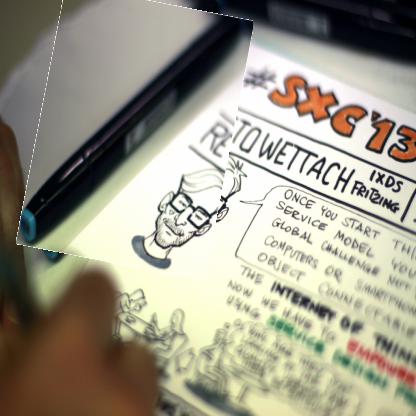 #SXC'13
RE TO WETTACH IXDS
FRITZING
ONCE YOU START THI
SERVICE MODEL YO
GLOBAL CHALLENGE NOT
COMPUTERS OR SMARTPHO
OBJECT CONNECTABLE
THE INTERNET OF THIN
NOW WE HAVE TO EMPOWER
USING SERVICE DESIGN TO